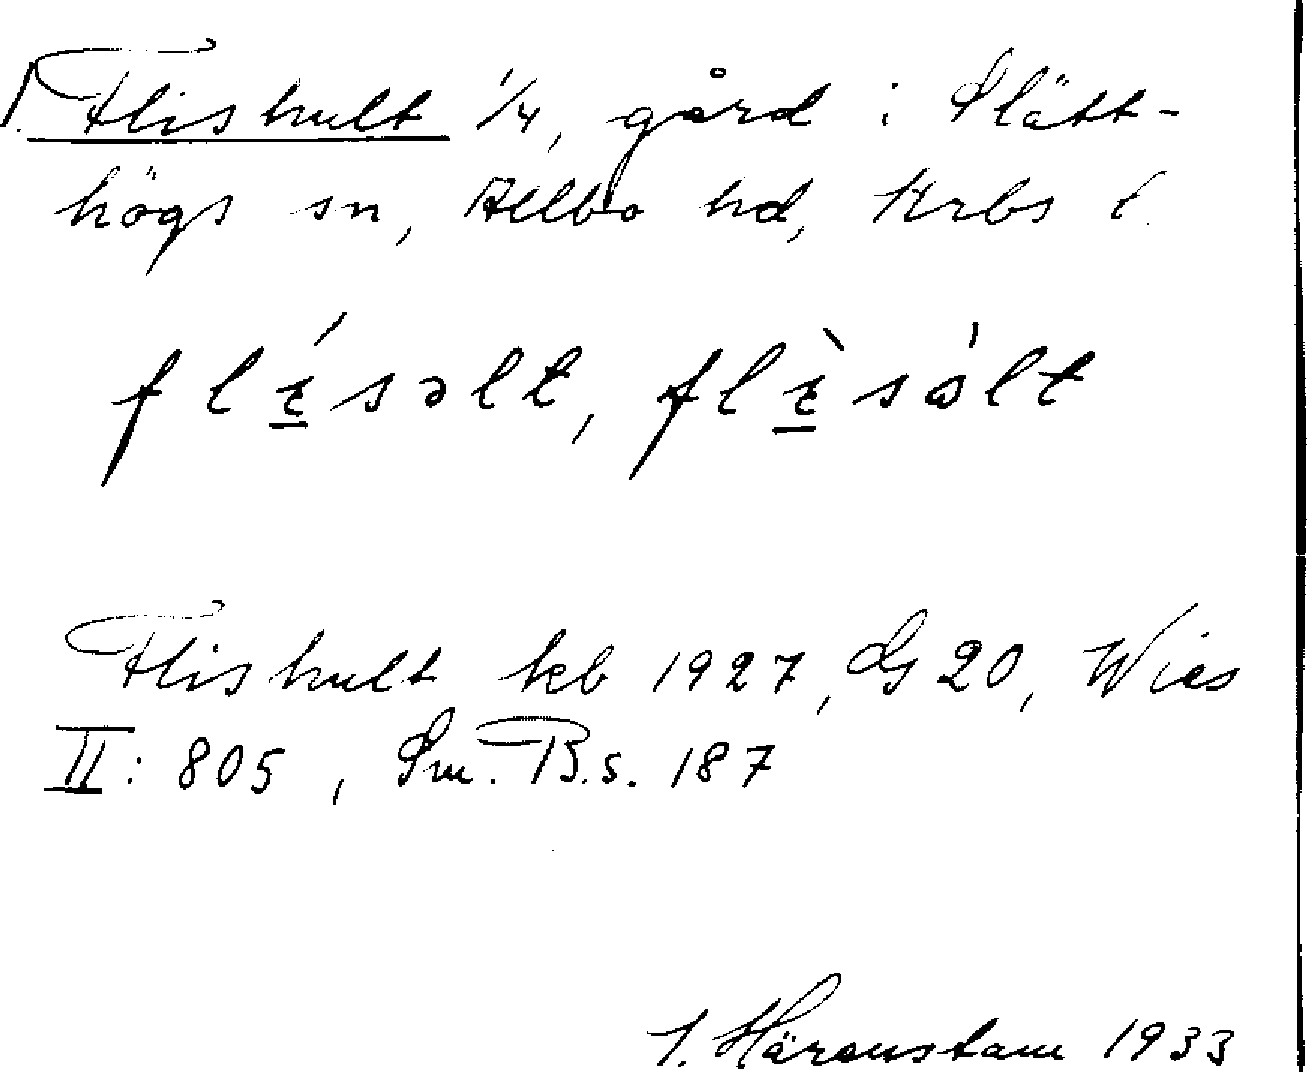 1. Flishult 1/4, gård i Slätt-
högs sn, Allbo hd, Krbs l.
flɪ́səlt, flɪ̀sòlt
Flishult kb 1927, GS 20, Wies
II: 805, Sm. B. s. 187
J. Härenstam 1933